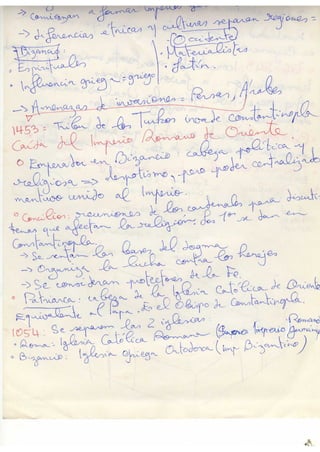 → comienzan a formar imperios
→ diferencias étnicas y culturas separan regiones =
Bizancio
Occidente
• Espirituales
• Materialistas
• Influencia griega = griego
• Latín.
→ Amenazas de invasiones = Persas, Árabes
1453: Tribu de los Turkos invade Constantinopla
Caída del Imperio Romano de Oriente.
○ Emperador en Bizancio: cabeza política y
religiosa ⇒ despotismo, pero poder centralizado
mantuvo unido al Imperio.
○ Concilios: reuniones de los cardenales para discutir
temas que afectan la religión: los 1os se dan en
Constantinopla
→ Se sentan las bases del dogma
→ Organiza la lucha contra los herejes
→ Se consideran protectores de la Fe.
• Patriarca: cabeza de la Iglesia Católica de Oriente
Equivalente al Papa. Es el Obispo de Constantinopla.
1054: Se separan las 2 iglesias.
• Roma: Iglesia Católica Romana (Sacro Imperio Romano
• Bizancio: Iglesia Griega Ortodoxa (imp. Bizantino)